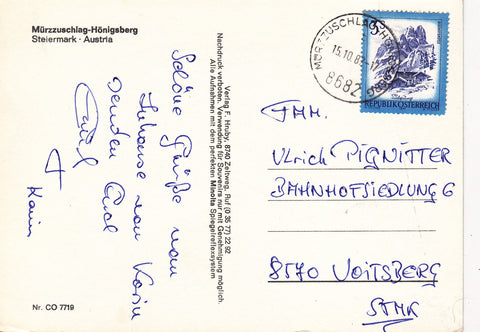 Mürzzuschlag-Hönigsberg
Steiermark · Austria
Schöne Grüße vom
Zuhause von Karin
senden Euch
Karin
Nr. CO 7719
Verlag F. Hruby, 8740 Zeltweg, Ruf (0 35 77) 22 92
Nachdruck verboten. Verwendung für Souvenirs nur mit Genehmigung möglich.
Alle Aufnahmen mit dem perfekten Minolta Spiegelreflexsystem
15.10.83
8682
REPUBLIK ÖSTERREICH
FAM.
ULRICH PIGNITTER
BAHNHOFSIEDLUNG 6
8570 VOITSBERG
STMK